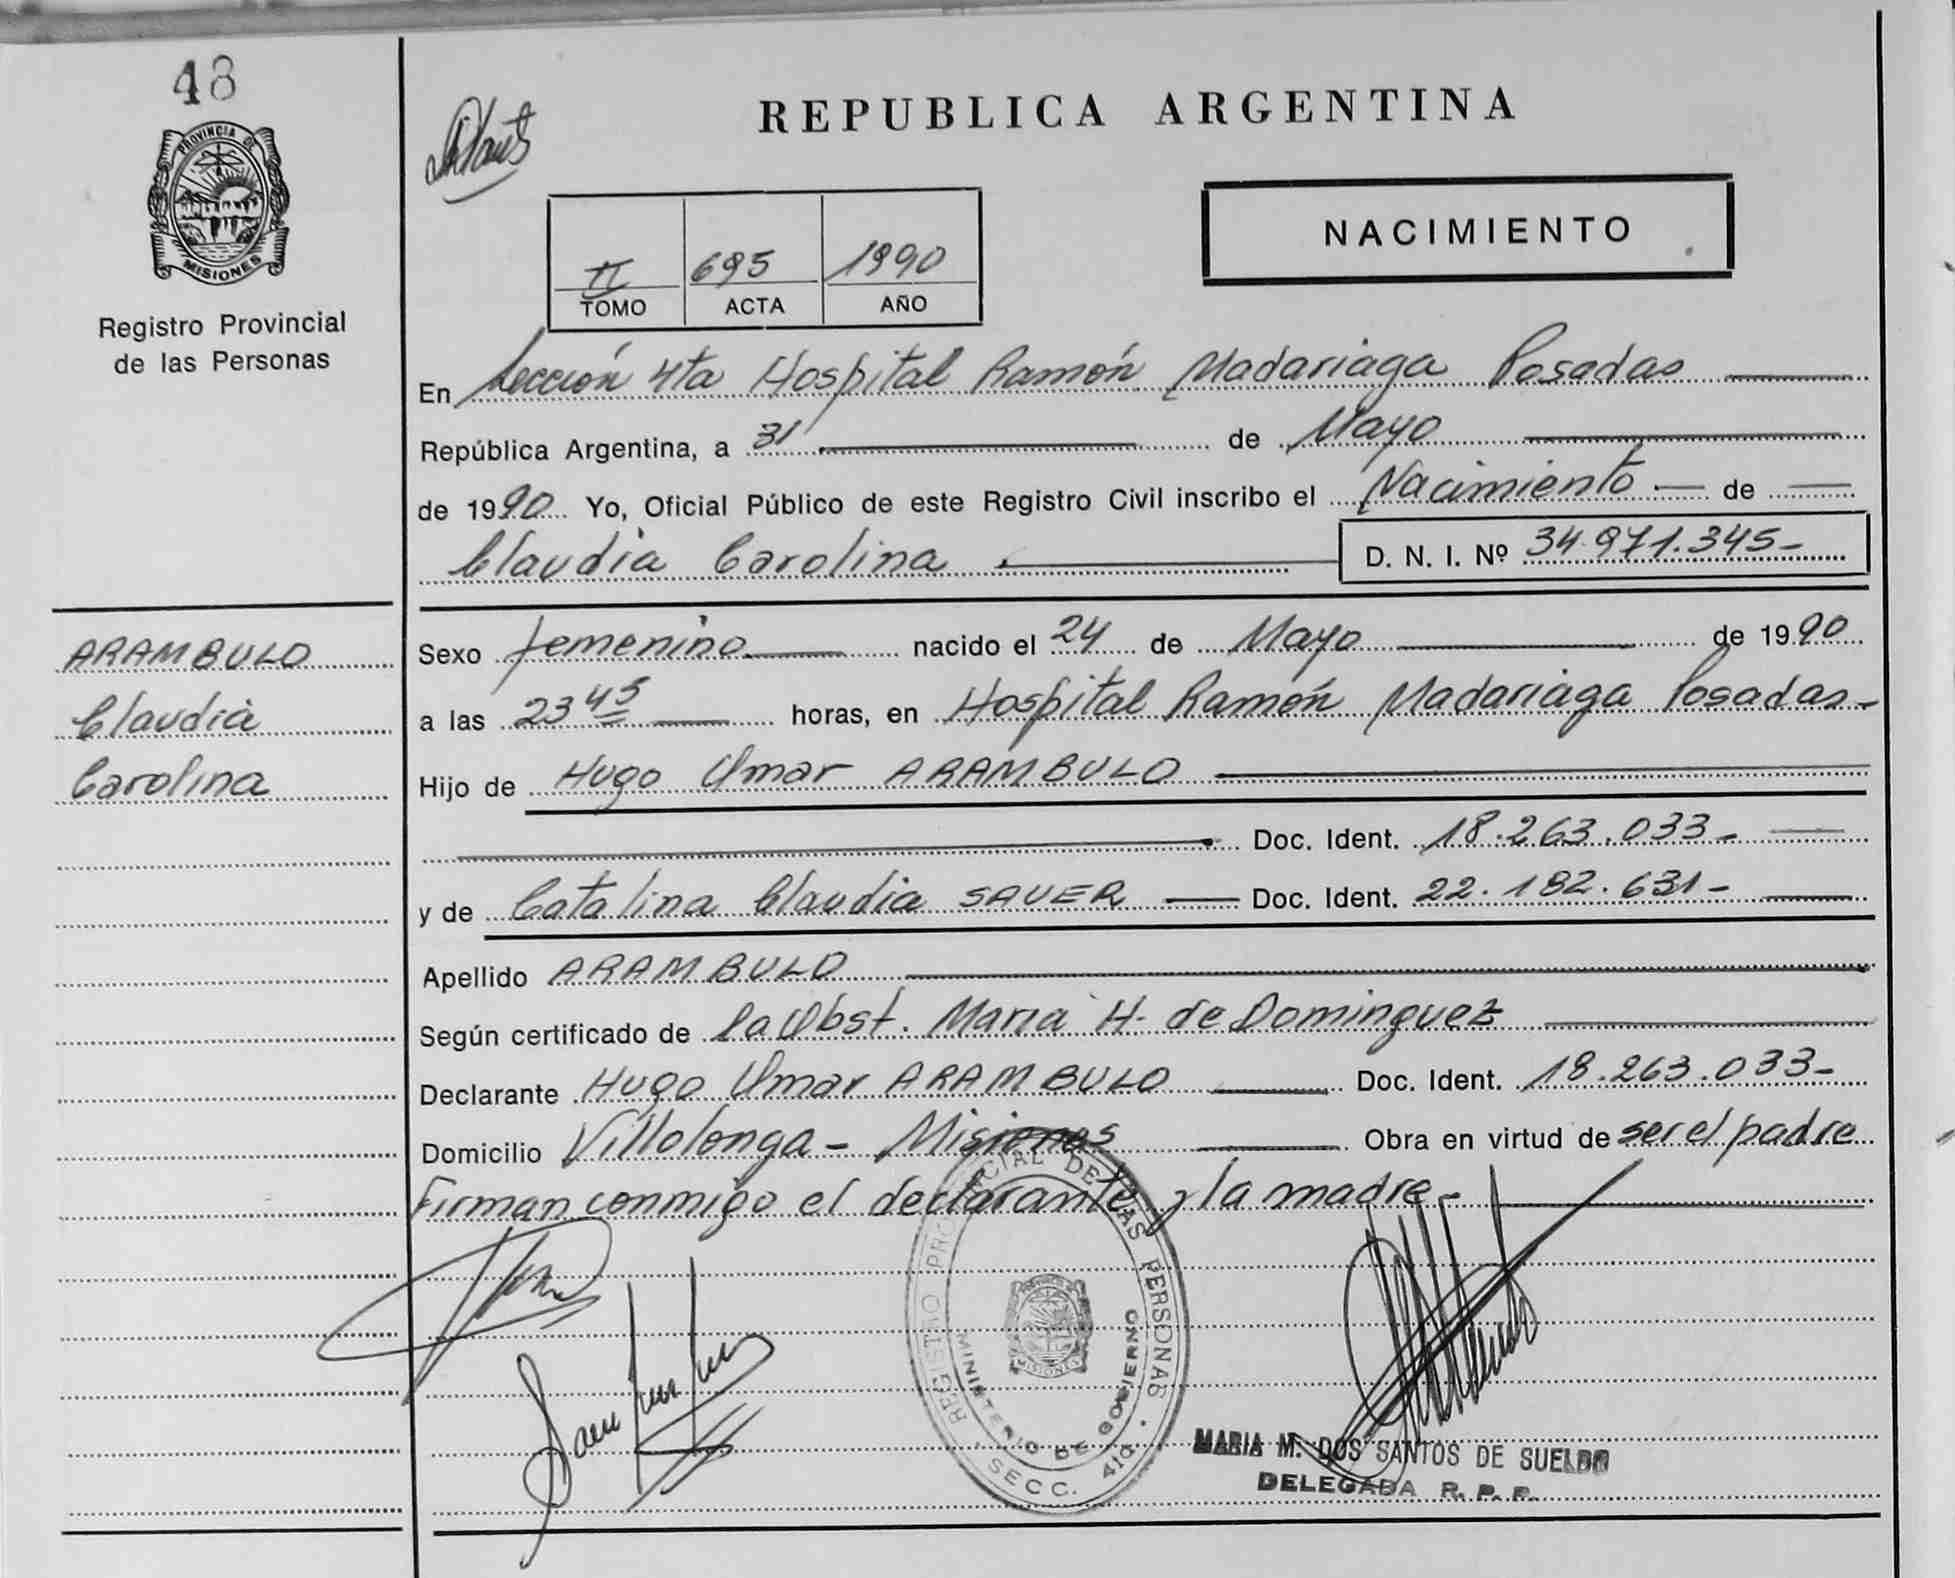 48
PROVINCIA DE
MISIONES
Registro Provincial
de las Personas
REPUBLICA ARGENTINA
NACIMIENTO
II 695 1990
TOMO ACTA AÑO
En Sección 4ta Hospital Ramón Madariaga Posadas
República Argentina, a 31 de Mayo
de 1990 Yo, Oficial Público de este Registro Civil inscribo el Nacimiento de
Claudia Carolina D. N. I. Nº 34.971.345-
ARAMBULO
Claudia
Carolina
Sexo femenino nacido el 24 de Mayo de 1990
a las 23 45 horas, en Hospital Ramón Madariaga Posadas-
Hijo de Hugo Omar ARAMBULO
Doc. Ident. 18.263.033-
y de Catalina Claudia SAUER Doc. Ident. 22.182.631-
Apellido ARAMBULO
Según certificado de la Obst. Maria H. de Dominguez
Declarante Hugo Omar ARAMBULO Doc. Ident. 18.263.033-
Domicilio Villalonga - Misiones Obra en virtud de ser el padre
Firman conmigo el declarante y la madre-
REGISTRO PROVINCIAL DE LAS PERSONAS
MINISTERIO DE GOBIERNO
SECC. 4ta
MISIONES
MARIA M. DOS SANTOS DE SUELDO
DELEGADA R. P. P.